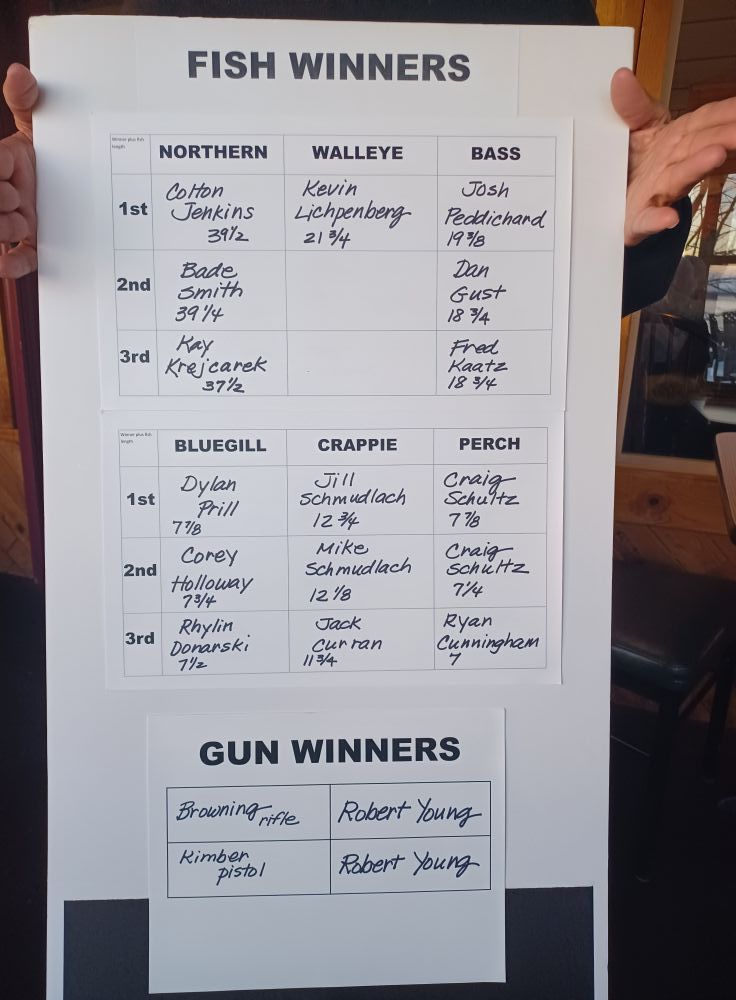 FISH WINNERS
Winner plus fish
length
NORTHERN WALLEYE BASS
1st
Colton
Jenkins
39 1/2
Kevin
Lichpenberg
21 3/4
Josh
Peddichard
19 3/8
2nd
Bade
Smith
39 1/4
Dan
Gust
18 3/4
3rd
Kay
Krejcarek
37 1/2
Fred
Kaatz
18 3/4
Winner plus fish
length
BLUEGILL CRAPPIE PERCH
1st
Dylan
Prill
7 7/8
Jill
Schmudlach
12 3/4
Craig
Schultz
7 7/8
2nd
Corey
Holloway
7 3/4
Mike
Schmudlach
12 1/8
Craig
Schultz
7 1/4
3rd
Rhylin
Donarski
7 1/2
Jack
Curran
11 3/4
Ryan
Cunningham
7
GUN WINNERS
Browning rifle
Robert Young
Kimber
pistol
Robert Young